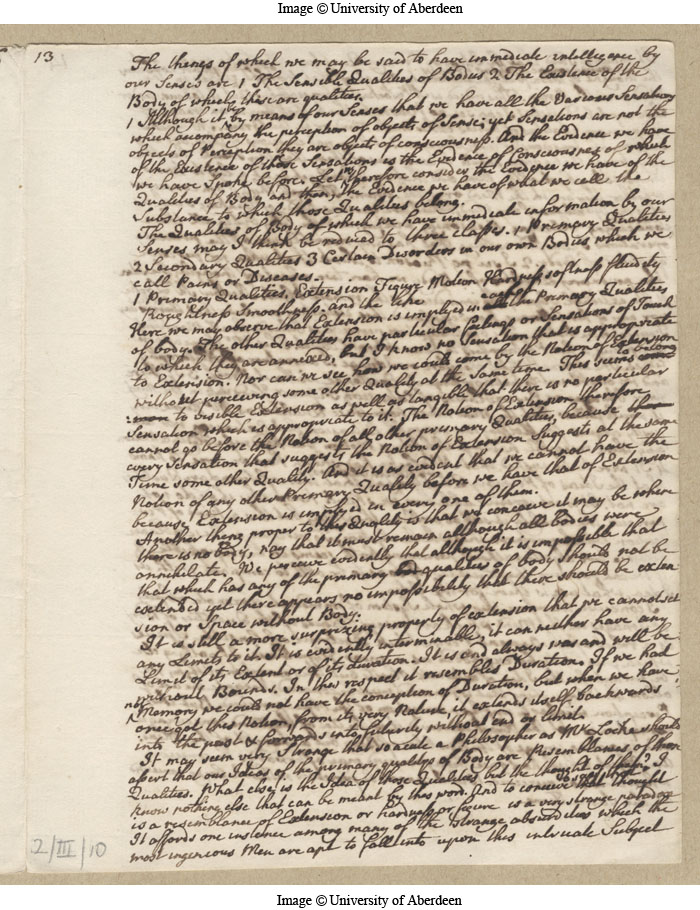 Image © University of Aberdeen
13
The things of which we may be said to have immediate intelligence by
our Senses are 1 The Sensible Qualities of Bodies 2 The Existence of the
Body of which these are qualities.
1 Although it is by means of our Senses that we have all the Various Sensations
which accompany the perception of objects of Sense; yet Sensations are not the
objects of Perception they are objects of consciousness. And the Evidence we have
of the Existence of those Sensations is the Evidence of Consciousness of which
we have Spoke before. Let us therefore consider the Evidence we have of the
Qualities of Body and then, the Evidence we have of what we call the
Substance to which those Qualities belong.
The Qualities of Body of which we have immediate information by our
Senses may I think be reduced to three classes. 1 Primary Qualities
2 Secondary Qualities 3 Certain Disorders in our own Bodies which we
call Pains or Diseases.
1 Primary Qualities. Extension Figure Motion Hardness softness fluidity
Roughness Smoothness. and the like
Here we may observe that Extension is implyed in all the Primary Qualities
of body. The other Qualities have particular feelings or Sensations of Touch
to which they are annexed, but I know no Sensation that is appropriate
to Extension. Nor can we see how we could come by the Notion of Extension
without perceiving some other Quality at the Same time. This seems to belong
to visible Extension as well as tangible that there is no particular
Sensation which is appropriate to it. The Notion of Extension therefore
cannot go before the Notion of all other primary Qualities, because
every Sensation that suggests the Notion of Extension Suggests at the same
Time some other Quality. And it is as evident that we cannot have the
Notion of any other Primary Quality before we have that of Extension
because Extension is implyed in every one of them.
Another thing proper to this Quality is that we conceive it may be where
there is no body, nay that it must remain although all bodies were
annihilate. We perceive evidently that although it is impossible that
that which has any of the primary qualities of body should not be
extended yet there appears no impossibility that there should be exten
sion or Space without Body.
It is still a more surprizing property of extension that we cannot set
any Limits to it. It is evidently interminable, it can neither have any
Limit of its Extent or of its duration. It is and always was and will be
without Bounds. In this respect it resembles Duration. If we had
not Memory we could not have the conception of Duration, but when we have
once got this Notion, from its very Nature it extends itself backwards
into the past & forwards into futurity without end or limit.
It may seem very strange that so acute a Philosopher as Mr Locke should
assert that our Ideas of the primary qualitys of Body are Resemblances of those
Qualities. What else is the Idea of those Qualities but the thought of them? I
know nothing else that can be meant by this word. And to conceive that thought
is a resemblance of Extension or hardness or figure is a very strange paradox
It affords one instance among many of the strange absurdities which the
most ingenious Men are apt to fall into upon this intricate Subject
2/III/10
Image © University of Aberdeen